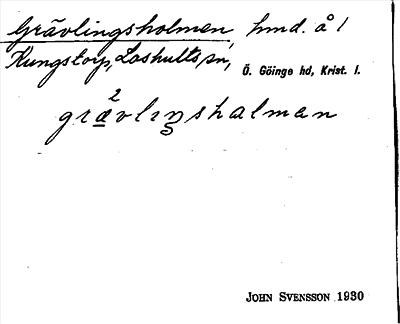 Grävlingsholmen, hmd. å 1
Kungstorp, Loshults sn,
Ö. Göinge hd, Krist. l.
2
grævlıŋshalman
JOHN SVENSSON 1930